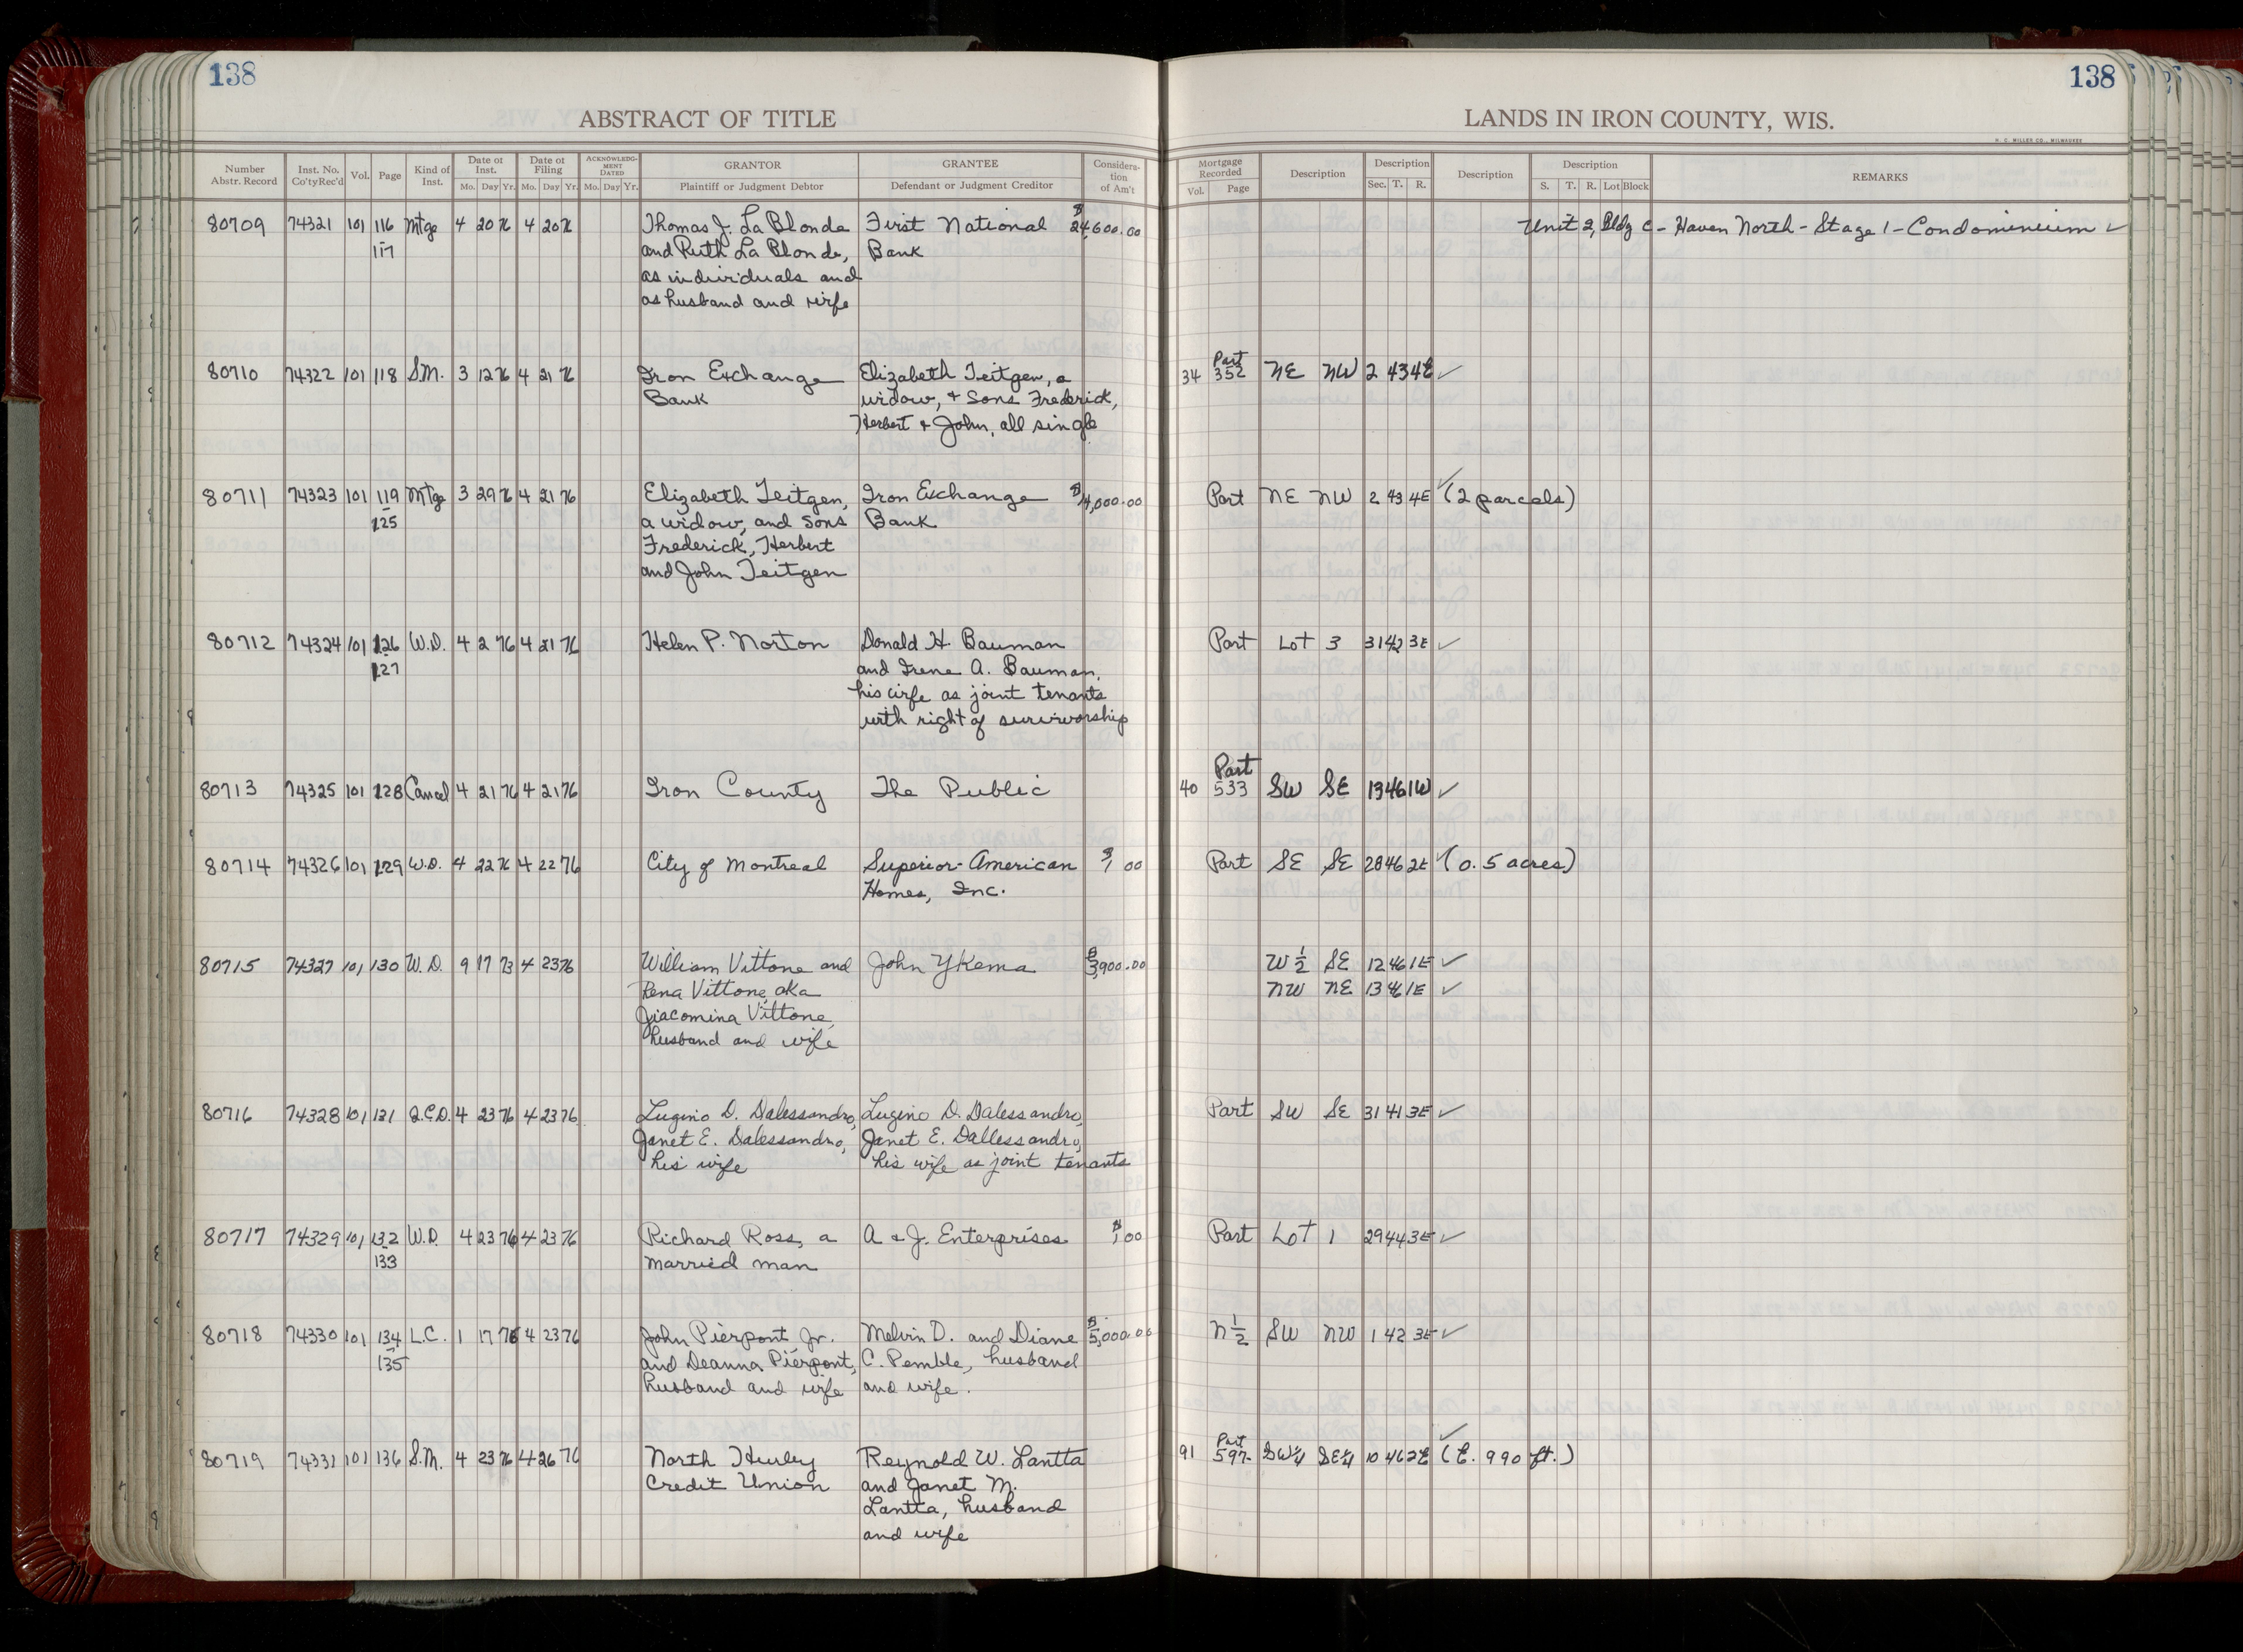 138
138
ABSTRACT OF TITLE
LANDS IN IRON COUNTY, WIS.
H. C. MILLER CO., MILWAUKEE
Number Abstr. Record | Inst. No. Co'ty Rec'd | Vol. | Page | Kind of Inst. | Date of Inst. Mo. Day Yr. | Date of Filing Mo. Day Yr. | ACKNOWLEDGMENT DATED Mo. Day Yr. | GRANTOR Plaintiff or Judgment Debtor | GRANTEE Defendant or Judgment Creditor | Consideration of Am't | Mortgage Recorded Vol. Page | Description | Description Sec. T. R. | Description | Description S. T. R. Lot Block | REMARKS
80709 74321 101 116 Mtge 4 20 76 4 20 76 Thomas J. La Blonde First National $24,600.00 Unit 2, Bldg C - Haven North - Stage 1 - Condominium ✓
117 and Ruth La Blonde, Bank
as individuals and
as husband and wife
80710 74322 101 118 S.M. 3 12 76 4 21 76 Iron Exchange Elizabeth Teitgen, a 34 Part 352 NE NW 2 43 4E ✓
Bank widow, + sons Frederick,
Herbert + John, all single
80711 74323 101 119 Mtge 3 29 76 4 21 76 Elizabeth Teitgen, Iron Exchange $14,000.00 Part NE NW 2 43 4E ✓ (2 parcels)
125 a widow, and sons Bank
Frederick, Herbert
and John Teitgen
80712 74324 101 126 W.D. 4 2 76 4 21 76 Helen P. Norton Donald H. Bauman Part Lot 3 31 42 3E ✓
127 and Irene A. Bauman,
his wife as joint tenants
with right of survivorship
80713 74325 101 128 Cancel 4 21 76 4 21 76 Iron County The Public 40 Part 533 SW SE 13 46 1W ✓
80714 74326 101 129 W.D. 4 22 76 4 22 76 City of Montreal Superior-American $1 00 Part SE SE 28 46 2E ✓ (0.5 acres)
Homes, Inc.
80715 74327 101 130 W.D. 9 17 73 4 23 76 William Vittone and John Ykema $3,900.00 W ½ SE 12 46 1E ✓
Rena Vittone, aka NW NE 13 46 1E ✓
Giacomina Vittone,
husband and wife
80716 74328 101 131 Q.C.D. 4 23 76 4 23 76 Lugino D. Dalessandro, Lugino D. Dalessandro, Part SW SE 31 41 3E ✓
Janet E. Dalessandro, Janet E. Dallessandro,
his wife his wife as joint tenants
80717 74329 101 132 W.D. 4 23 76 4 23 76 Richard Ross, a A & J. Enterprises $1.00 Part Lot 1 29 44 3E ✓
133 married man
80718 74330 101 134 L.C. 1 17 76 4 23 76 John Pierpont Jr. Melvin D. and Diane $5,000.00 N ½ SW NW 1 42 3E ✓
135 and Deanna Pierpont, C. Pemble, husband
husband and wife and wife.
80719 74331 101 136 S.M. 4 23 76 4 26 76 North Hurley Reynold W. Lantta 91 Part 597 SW¼ SE¼ 10 46 2E ✓ (E. 990 ft.)
Credit Union and Janet M.
Lantta, husband
and wife